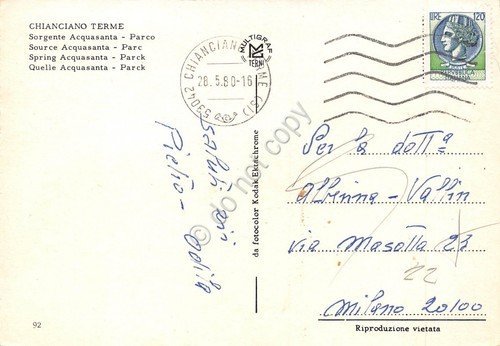 CHIANCIANO TERME
Sorgente Acquasanta - Parco
Source Acquasanta - Parc
Spring Acquasanta - Parck
Quelle Acquasanta - Parck
MULTIGRAF
TERNI
53042 CHIANCIANO TERME (SI)
28.5.80-16
LIRE 20
saluti
Pietro - Odila
da fotocolor Kodak Ektachrome
Per la dott.a
Albinna - Vallin
via Masotta 23
22
Milano 20100
92
Riproduzione vietata
do not copy